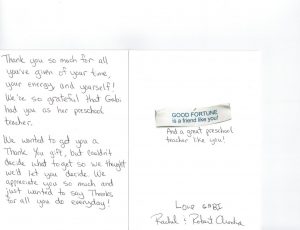 Thank you so much for all
you've given of your time,
your energy and yourself!
We're so grateful that Gabi
had you as her preschool
teacher.
We wanted to get you a
Thank You gift, but couldn't
decide what to get so we thought
we'd let you decide. We
appreciate you so much and
just wanted to say Thanks
for all you do everyday!
GOOD FORTUNE
is a friend like you!
And a great preschool
teacher like you!
Love GABI
Rachel & Robert